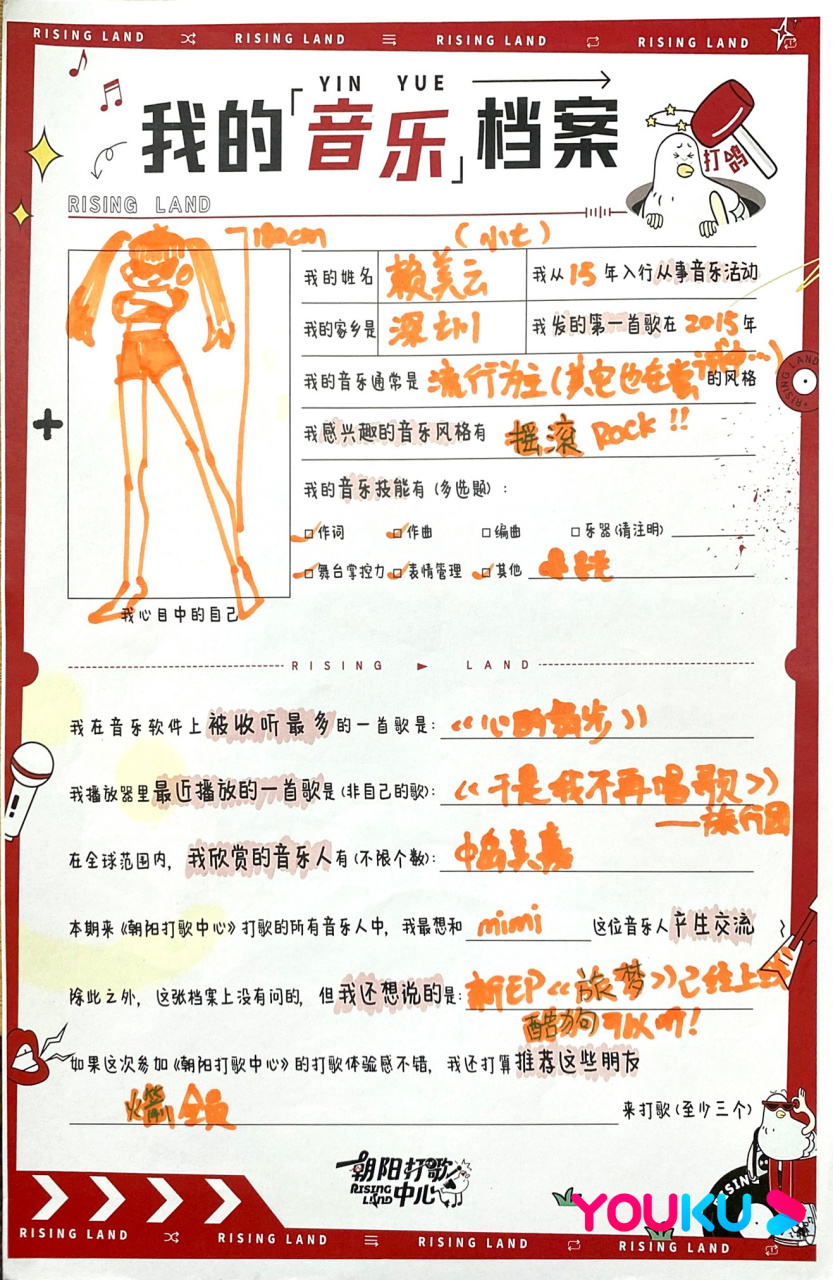 RISING LAND RISING LAND RISING LAND RISING LAND
YIN YUE
我的「音乐」档案
打鸽
RISING LAND
180cm
(小七)
我的姓名 赖美云 我从15年入行从事音乐活动
我的家乡是 深圳 我发的第一首歌在2015年
我的音乐通常是 流行为主(其它也在尝试中...) 的风格
我感兴趣的音乐风格有 摇滚 Rock!!
我的音乐技能有(多选题):
□作词 □作曲 □编曲 □乐器(请注明)
□舞台掌控力 □表情管理 □其他
我心目中的自己
RISING LAND
我在音乐软件上被收听最多的一首歌是:《心的舞步》
我播放器里最近播放的一首歌是(非自己的歌):《于是我不再唱歌》
——旅行团
在全球范围内,我欣赏的音乐人有(不限个数): 中岛美嘉
本期来《朝阳打歌中心》打歌的所有音乐人中,我最想和 mimi 这位音乐人产生交流
除此之外,这张档案上没有问的,但我还想说的是: 新EP《旅梦》已经上线
酷狗可以听!
如果这次参加《朝阳打歌中心》的打歌体验感不错,我还打算推荐这些朋友
火箭全员 来打歌(至少三个)
朝阳打歌中心
RISING LAND
YOUKU
RISING LAND RISING LAND RISING LAND RISING LAND